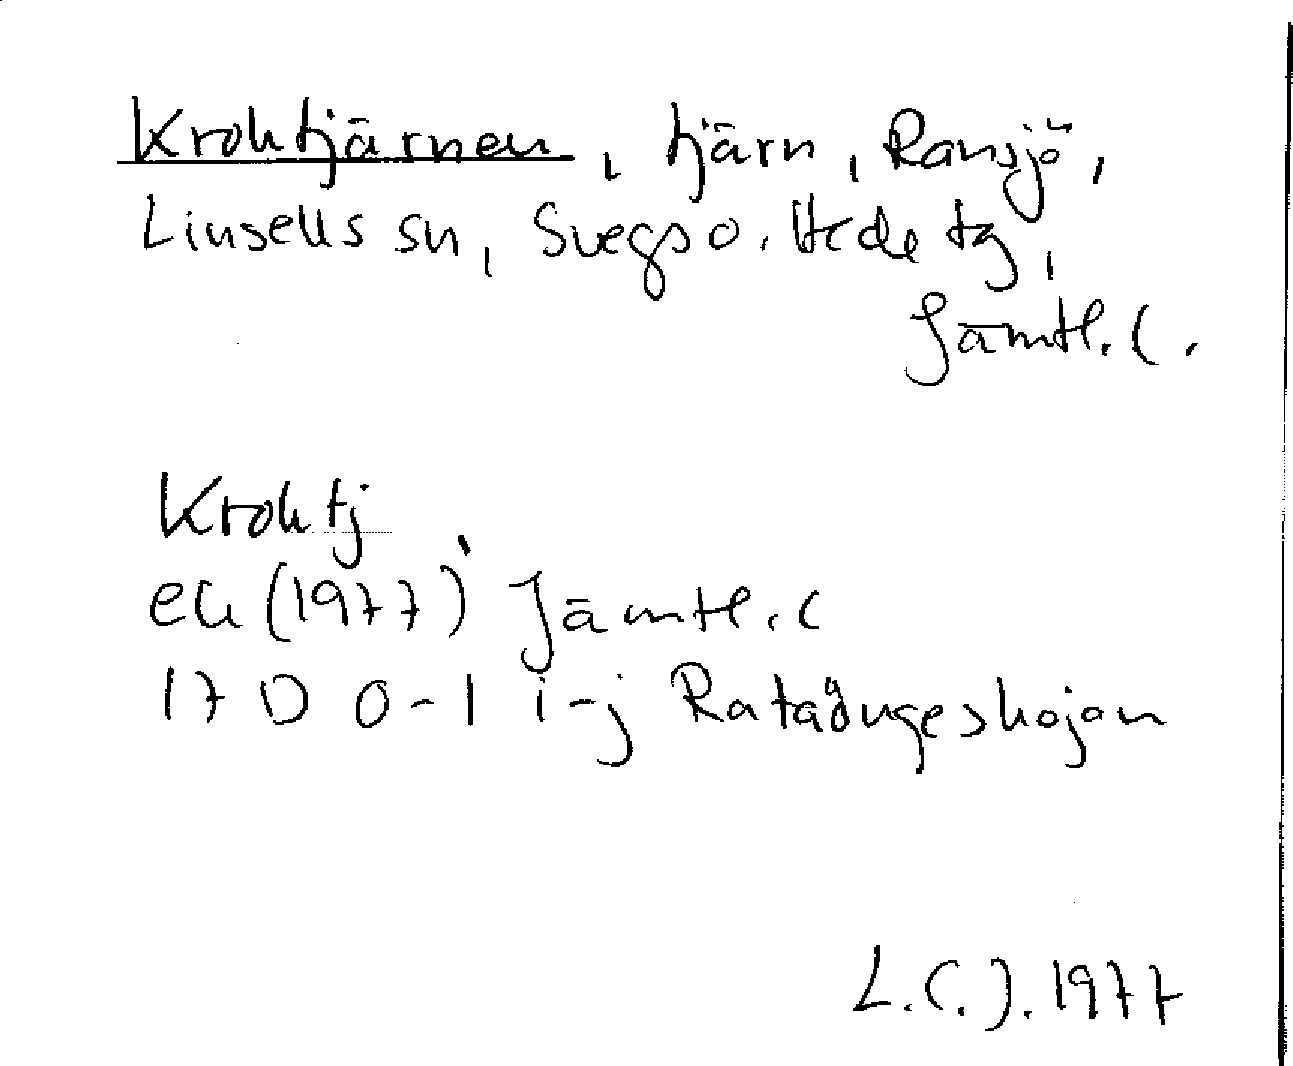 Kroktjärnen, tjärn, Ransjö,
Linsells sn, Svegs o. Hede tg,
Jämtl. l.
Kroktj
ek (1977) Jämtl. l
17 D 0-1 i-j Rataåugeskojan
L.C.J. 1977